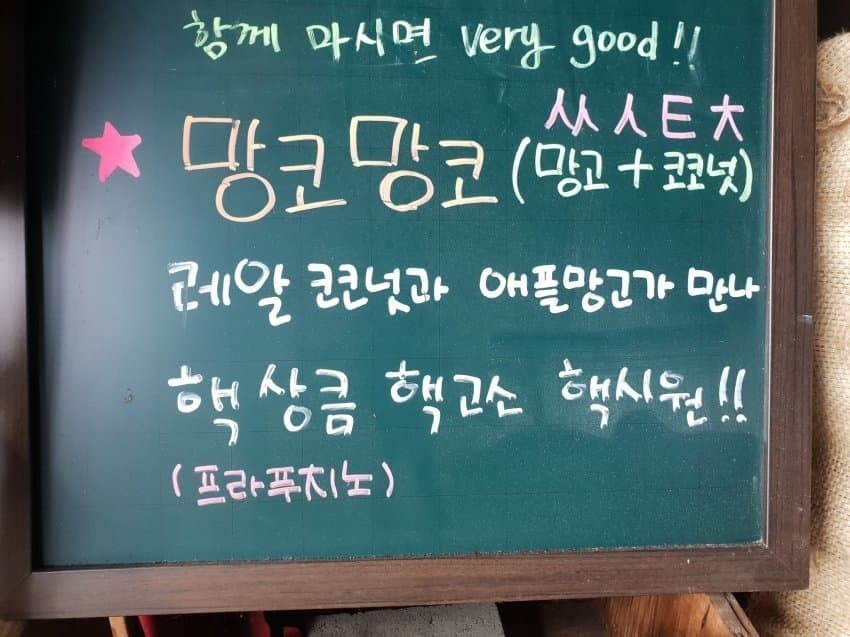 함께 마시면 very good!!
ㅆㅅㅌㅊ
망코망코 (망고+코코넛)
레알 코코넛과 애플망고가 만나
핵상큼 핵고소 핵시원!!
(프라푸치노)